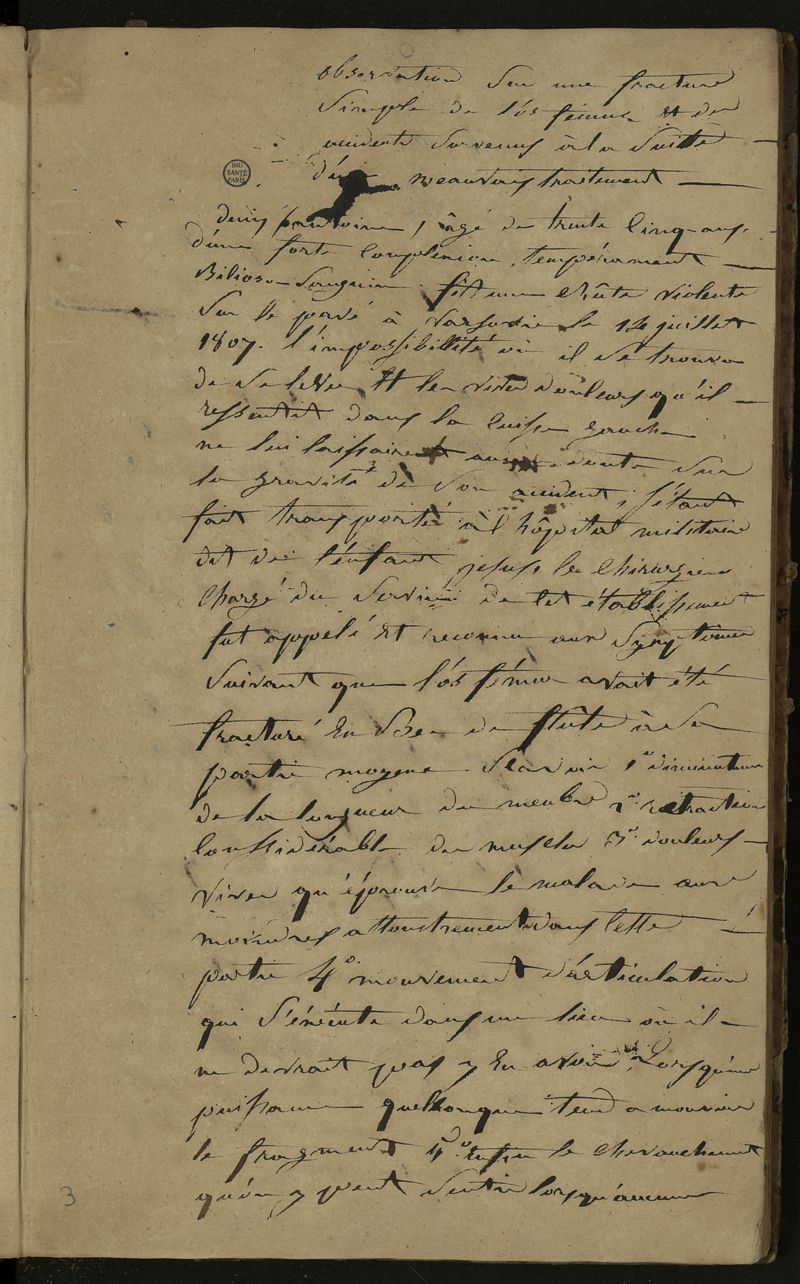 observation sur une fracture
simple de l'os fémur et des
accidents survenus à la suitte
d'un meauvais traitement
BIU
SANTÉ
PARIS
denis âgé de trente cinq ans,
d'une forte complexion, tempérament
Bilioso-sanguin. fit une chûte violente
sur le pavé à varsovie le 12 juillet
1807. l'impossibilité où il se trouva
de se lever et les vives douleurs qu'il
ressentit dans la cuisse gauche
ne lui laissaient aucun doute sur
la gravité de son accident, s'étant
fait transporté à l'hôpital militaire
dit de l'enfant jesus le chirurgien
chargé du service de cet établissement
fut appelé et reconnu aux symptômes
suivant que l'os fémur avait été
fracturé en Bec de flûte à sa
partie moyene savoir 1° diminution
de la longueur du membre 2° rétraction
considérable des muscles 3° douleurs
vives qu'éprouve le malade aux
moindres attouchements dans cette
partie 4° mouvement d'articulation
qui s'exécute dans un lieu où il
ne devrait pas y en avoir, Lorsqu'une
puissance quelconque tend a mouvoir
le fragment 5° enfin le chevauchement
qu'on y peut sentir lorsqu'aucune
3